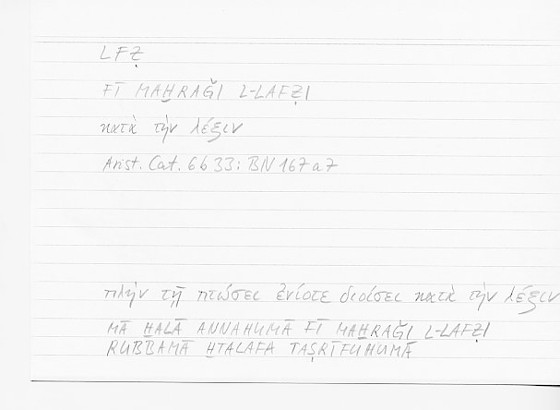 LFẒ
FĪ MAH̱RAǦI L-LAFẒI
κατὰ τὴν λέξιν
Arist. Cat. 6b33: BN 167a7
πλὴν τῇ πτώσει ἐνίοτε διοίσει κατὰ τὴν λέξιν
MĀ H̱ALĀ ANNAHUMĀ FĪ MAH̱RAǦI L-LAFẒI
RUBBAMĀ H̱TALAFA TAṢRĪFUHUMĀ